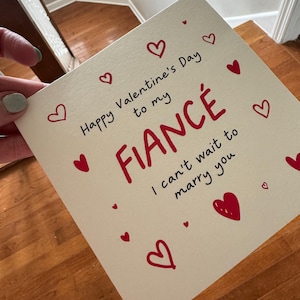 Happy Valentine's Day
to my
FIANCÉ
I can't wait to
marry you